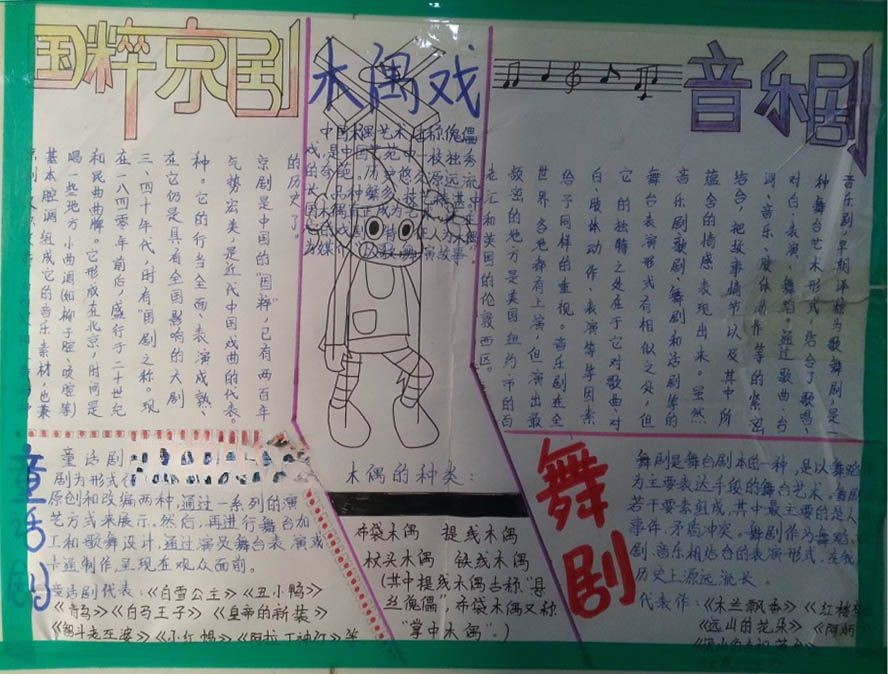 国粹京剧
基本腔调组成它的音乐素材,也兼
唱一些地方小曲调(如柳子腔、吱腔等)
和昆曲曲牌。它形成在北京,时间是
在一八四零年前后,盛行于二十世纪
三、四十年代,时有"国剧之称。现
在它仍是具有全国影响的大剧
种。它的行当全面、表演成熟、
气势宏美,是近代中国戏曲的代表。
京剧是中国的"国粹",已有两百年
的历史了。
木偶戏
中国木偶艺术古称傀儡
戏,是中国艺苑中一枝独秀
木偶的种类:
布袋木偶 提线木偶
杖头木偶 铁线木偶
(其中提线木偶古称"悬
丝傀儡",布袋木偶又称
"掌中木偶"。)
音乐剧
音乐剧(早期译称为歌舞剧,是一
种舞台艺术形式。结合了歌唱、
对白、表演、舞蹈。通过歌曲、台
词、音乐、肢体动作等的紧密
结合,把故事情节以及其中所
蕴含的情感表现出来。虽然
音乐剧歌剧、舞剧和话剧等的
舞台表演形式有相似之处,但
它的独特之处在于它对歌曲、对
白、肢体动作、表演等等因素
给予同样的重视。音乐剧在全
世界各地都有上演,但演出最
频密的地方是美国纽约市的百
老汇和英国的伦敦西区。
童话剧
童话剧
剧为形式
原创和改编两种,通过一系列的演
艺方式来展示,然后,再进行舞台加
工和歌舞设计,通过演员舞台表演或
卡通制作,呈现在观众面前。
童话剧代表:《白雪公主》《丑小鸭》
《青鸟》《白马王子》《皇帝的新装》
《智斗老巫婆》《小红帽》《阿拉丁神灯》等
舞剧
舞剧是舞台剧本的一种,是以舞蹈
为主要表达手段的舞台艺术。舞剧
若干要素组成,其中最主要的是人
事件、矛盾冲突。舞剧作为舞蹈、
剧、音乐相结合的表演形式,在我
历史上源远流长。
代表作:《木兰飘香》《红楼
《远山的花朵》《阿